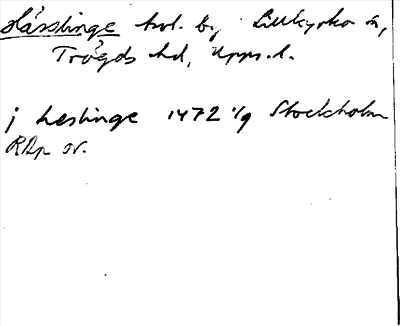 Hässlinge kvl. by, Litslena sn,
Trögds hd, Upps.l.
j heslinge 1472 1/9 Stockholm
RAp or.